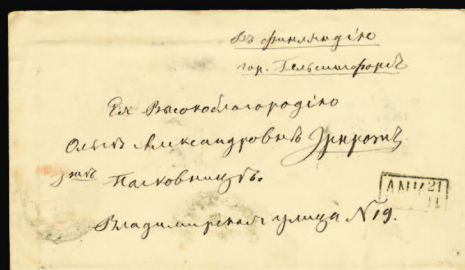 Въ Финляндію
гор. Гельсингфорсъ
Ея Высокоблагородію
Ольгѣ Александровнѣ
Полковницѣ.
Владимирская улица N 19.
ANK 21
11